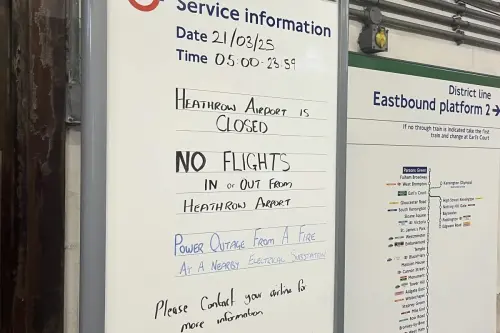 Service information
Date 21/03/25
Time 05:00-23:59
HEATHROW AIRPORT IS
CLOSED
NO FLIGHTS
IN or OUT FROM
HEATHROW AIRPORT
POWER OUTAGE FROM A FIRE
AT A NEARBY ELECTRICAL SUBSTATION
Please Contact your airline for
more information
District line
Eastbound platform 2 →
If no through train is indicated take the first
train and change at Earl's Court
Parsons Green
Fulham Broadway
West Brompton
Kensington Olympia
Earl's Court
High Street Kensington
Gloucester Road
Notting Hill Gate
South Kensington
Bayswater
Sloane Square
Paddington
Victoria
Edgware Road
St. James's Park
Westminster
Embankment
Temple
Blackfriars
Mansion House
Cannon Street
Monument
Tower Hill
Aldgate East
Whitechapel
Stepney Green
Mile End
Bow Road
Bromley-by-Bow